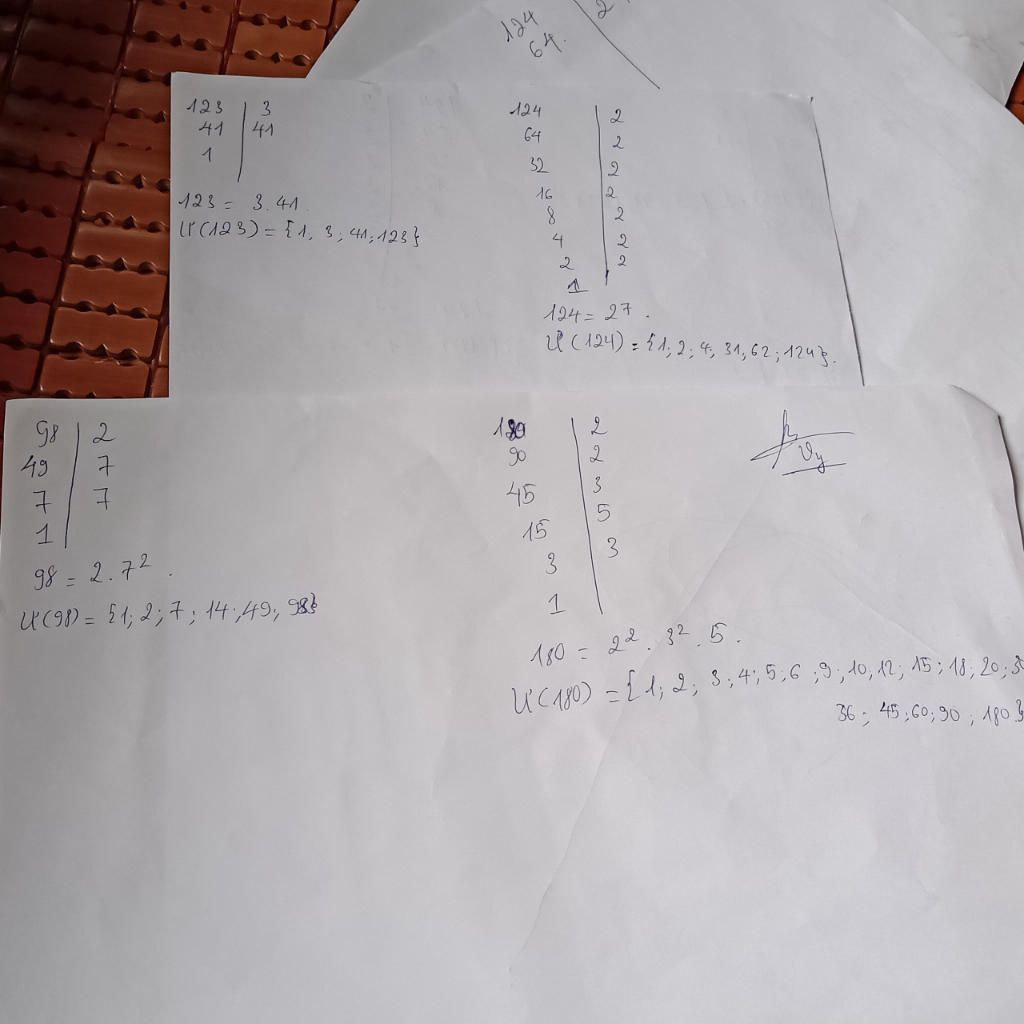 124 2
64.
123 | 3
41 | 41
1
123 = 3.41.
Ư(123) = {1, 3; 41; 123}
124 | 2
64 | 2
32 | 2
16 | 2
8 | 2
4 | 2
2 | 2
1
124 = 2⁷.
Ư(124) = {1; 2; 4; 31; 62; 124}.
98 | 2
49 | 7
7 | 7
1
98 = 2.7².
Ư(98) = {1; 2; 7; 14; 49; 98}
180 | 2
90 | 2
45 | 3
15 | 5
3 | 3
1
180 = 2². 3². 5.
Ư(180) = {1; 2; 3; 4; 5; 6; 9; 10; 12; 15; 18; 20; 3
36; 45; 60; 90; 180}
Vy